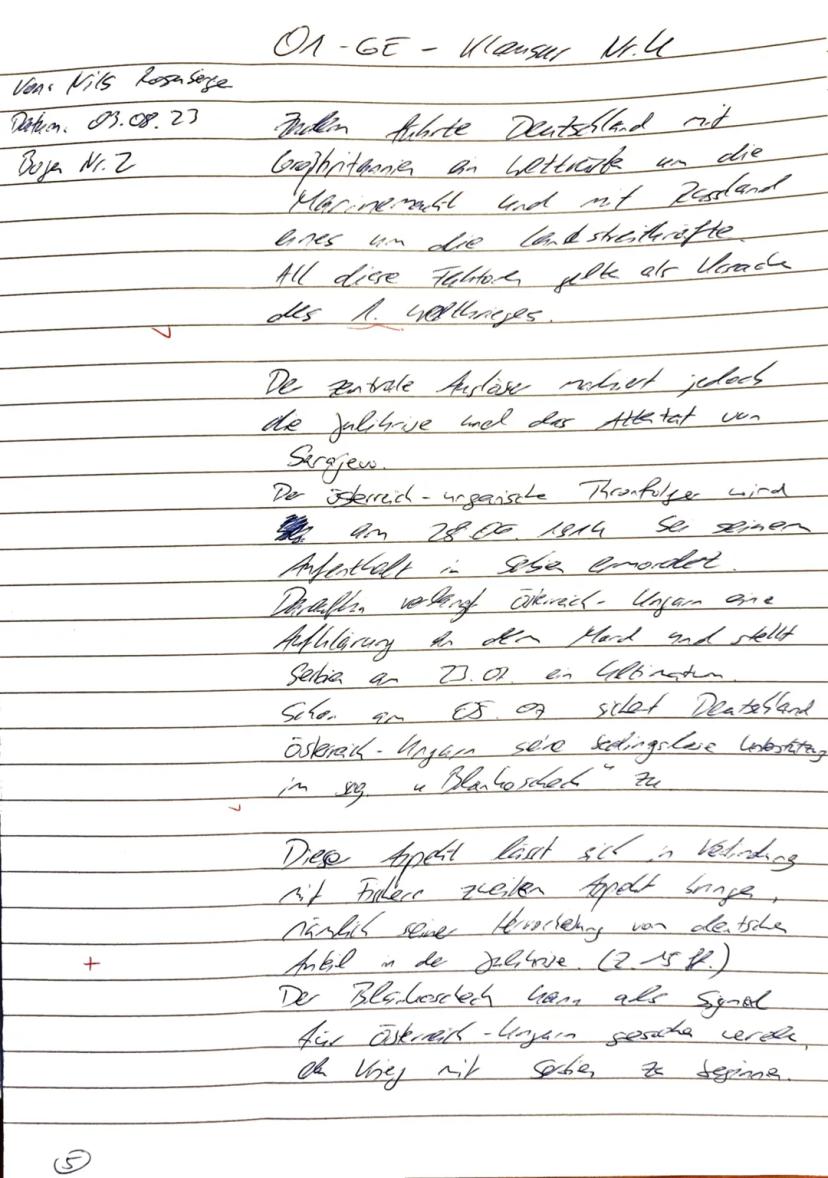 Q1 - GE - Klausur Nr. 4
Von: Nils Rosenberge
Datum: 03.08.23
Bogen Nr. 2
Zudem führte Deutschland mit
Großbritannien ein Wettrüsten um die
Marinemacht und mit Russland
eines um die Landstreitkräfte.
All diese Faktoren gelte als Ursache
des 1. Weltkrieges.
De zentrale Auslöser markiert jedoch
die Julikrise und das Attentat von
Sarajevo.
Der österreich-ungarische Thronfolger wird
am 28.06.1914 bei seinem
Aufenthalt in Serbien ermordet.
Daraufhin verlangt Österreich-Ungarn eine
Aufklärung an dem Mord und stellt
Serbien am 23.07. ein Ultimatum.
Schon am 05.07 sichert Deutschland
Österreich-Ungarn seine bedingslose Unterstützung
im sog. „Blankoscheck" zu.
Diese Aspekt lässt sich in Verbindung
mit Fischers zweiten Aspekt bringen,
nämlich seiner Hervorhebung von deutschen
+
Anteil in der Julikrise. (Z. 15 ff.)
Der Blankoscheck kann als Signal
für Österreich-Ungarn gesehen werden,
den Krieg mit Serbien zu beginnen.
5